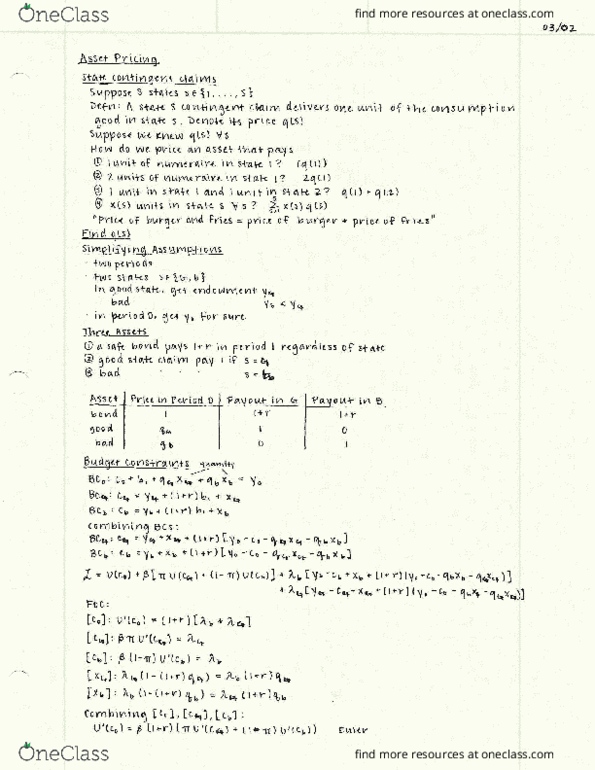 OneClass
find more resources at oneclass.com
03/02
Asset Pricing
State contingent claims
Suppose S states s∈{1,...,S}
Defn: A state s contingent claim delivers one unit of the consumption
good in state s. Denote its price q(s)
Suppose we knew q(s) ∀s
How do we price an asset that pays
① 1 unit of numeraire in state 1? (q(1))
② 2 units of numeraire in state 1? 2q(1)
③ 1 unit in state 1 and 1 unit in state 2? q(1) + q(2)
④ x(s) units in state s ∀s? Σ x(s)q(s)
"Price of burger and fries = price of burger + price of fries"
Find q(s)
Simplifying Assumptions
· two periods
· two states s∈{G,b}
In good state, get endowment y_G
bad y_b < y_G
· in period 0, get y_0 for sure
Three Assets
① a safe bond pays 1+r in period 1 regardless of state
② good state claim pay 1 if s = G
③ bad " " " s = b
Asset Price in Period 0 Payout in G Payout in B
bond 1 1+r 1+r
good q_G 1 0
bad q_b 0 1
Budget Constraints quantity
BC_0: c_0 + b_1 + q_G x_G + q_b x_b = y_0
BC_G: c_G = y_G + (1+r) b_1 + x_G
BC_b: c_b = y_b + (1+r) b_1 + x_b
Combining BCs:
BC_G: c_G = y_G + x_G + (1+r)[y_0 - c_0 - q_G x_G - q_b x_b]
BC_b: c_b = y_b + x_b + (1+r)[y_0 - c_0 - q_G x_G - q_b x_b]
ℒ = U(c_0) + β[π U(c_G) + (1-π) U(c_b)] + λ_b[y_b - c_b + x_b + (1+r)(y_0 - c_0 - q_b x_b - q_G x_G)]
+ λ_G[y_G - c_G - x_G + (1+r)(y_0 - c_0 - q_b x_b - q_G x_G)]
FOC:
[c_0]: U'(c_0) = (1+r)[λ_b + λ_G]
[c_G]: βπ U'(c_G) = λ_G
[c_b]: β(1-π) U'(c_b) = λ_b
[x_G]: λ_G(1-(1+r) q_G) = λ_b(1+r) q_G
[x_b]: λ_b(1-(1+r) q_b) = λ_G(1+r) q_b
Combining [c_0], [c_G], [c_b]:
U'(c_0) = β(1+r)(π U'(c_G) + (1-π) U'(c_b)) Euler
OneClass
find more resources at oneclass.com